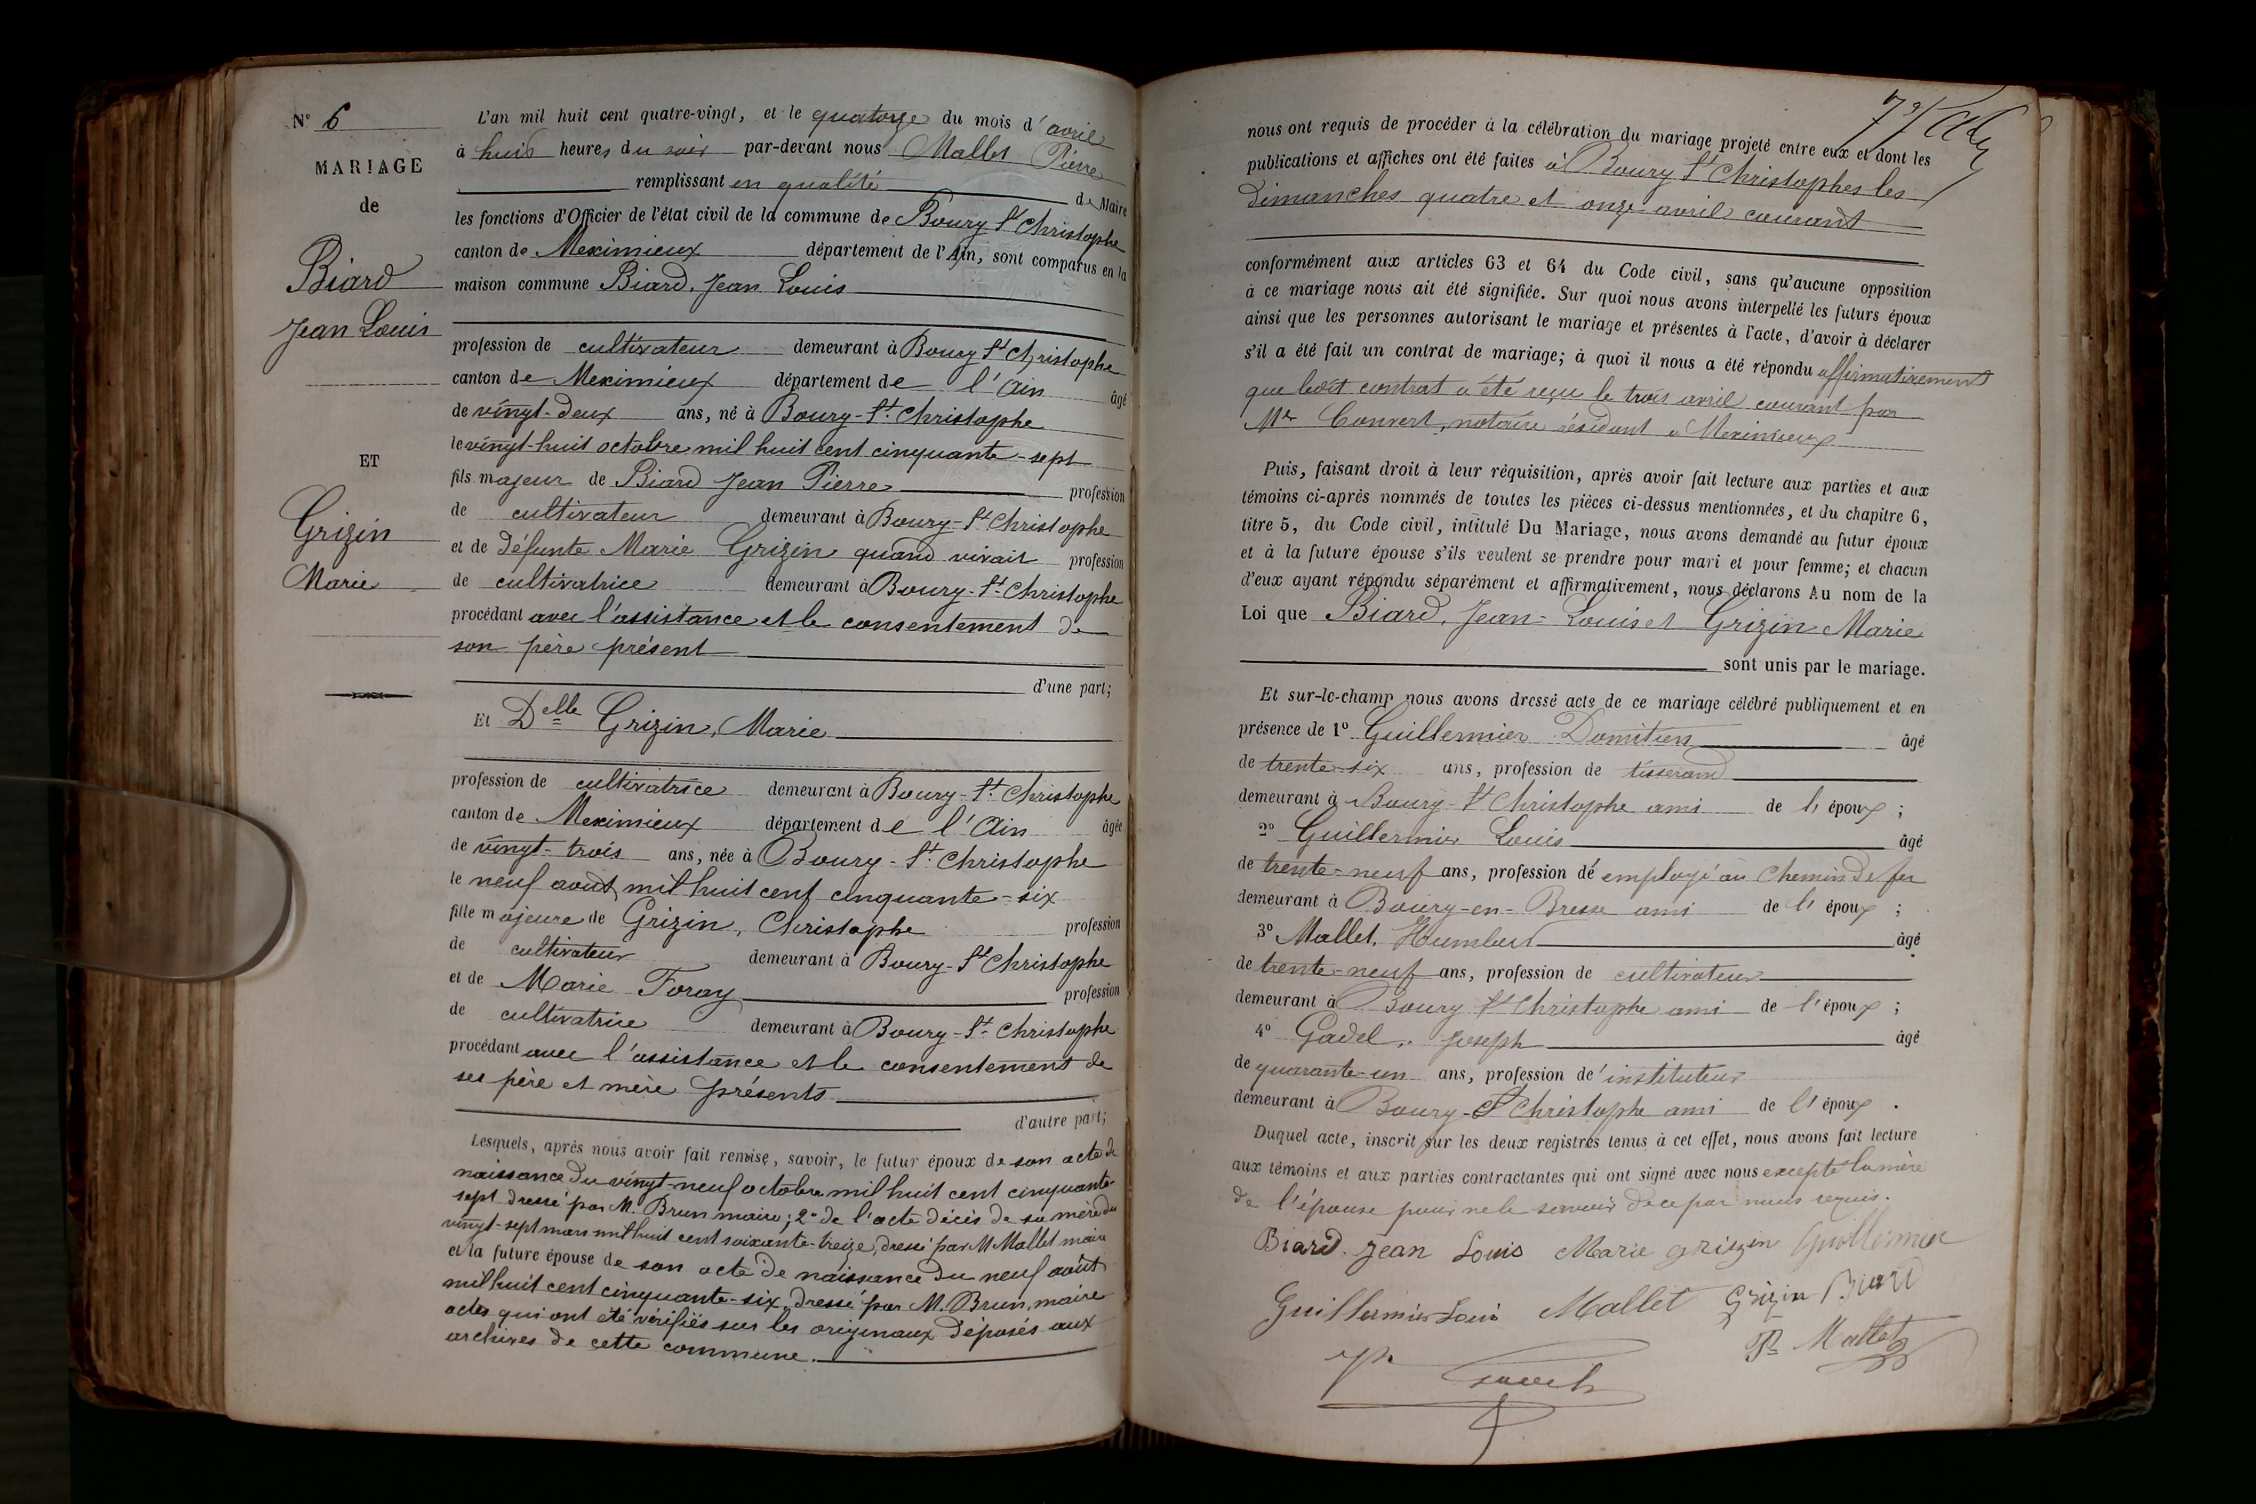 N° 6
MARIAGE
de
Biard
Jean Louis
ET
Grizin
Marie
L'an mil huit cent quatre-vingt, et le quatorze du mois d'avril
à huit heures du soir par-devant nous Mallet Pierre
remplissant en qualité de Maire
les fonctions d'Officier de l'état civil de la commune de Bourg St Christophe
canton de Meximieux département de l'Ain, sont comparus en la
maison commune Biard, Jean Louis
profession de cultivateur demeurant à Bourg St Christophe
canton de Meximieux département de l'Ain âgé
de vingt-deux ans, né à Bourg-St-Christophe
le vingt-huit octobre mil huit cent cinquante-sept
fils majeur de Biard Jean Pierre profession
de cultivateur demeurant à Bourg-St-Christophe
et de défunte Marie Grizin quand vivait profession
de cultivatrice demeurant à Bourg-St-Christophe
procédant avec l'assistance et le consentement de
son père présent
d'une part;
Et Delle Grizin, Marie
profession de cultivatrice demeurant à Bourg-St-Christophe
canton de Meximieux département de l'Ain âgée
de vingt-trois ans, née à Bourg-St-Christophe
le neuf août mil huit cent cinquante-six
fille majeure de Grizin, Christophe profession
de cultivateur demeurant à Bourg-St Christophe
et de Marie Foray profession
de cultivatrice demeurant à Bourg-St-Christophe
procédant avec l'assistance et le consentement de
ses père et mère présents
d'autre part;
Lesquels, après nous avoir fait remise, savoir, le futur époux de son acte de
naissance du vingt-neuf octobre mil huit cent cinquante-
sept dressé par M. Brun maire; 2° de l'acte décès de sa mère du
vingt-sept mars mil huit cent soixante-treize, dressé par M Mallet maire
et la future épouse de son acte de naissance du neuf août
mil huit cent cinquante-six, dressé par M. Brun, maire
actes qui ont été vérifiés sur les originaux déposés aux
archives de cette commune.
nous ont requis de procéder à la célébration du mariage projeté entre eux et dont les
publications et affiches ont été faites à Bourg St Christophe les
dimanches quatre et onze avril courant
conformément aux articles 63 et 64 du Code civil, sans qu'aucune opposition
à ce mariage nous ait été signifiée. Sur quoi nous avons interpellé les futurs époux
ainsi que les personnes autorisant le mariage et présentes à l'acte, d'avoir à déclarer
s'il a été fait un contrat de mariage; à quoi il nous a été répondu affirmativement
que ledit contrat a été reçu le trois avril courant par
Me Convert, notaire résidant à Meximieux
Puis, faisant droit à leur réquisition, après avoir fait lecture aux parties et aux
témoins ci-après nommés de toutes les pièces ci-dessus mentionnées, et du chapitre 6,
titre 5, du Code civil, intitulé Du Mariage, nous avons demandé au futur époux
et à la future épouse s'ils veulent se prendre pour mari et pour femme; et chacun
d'eux ayant répondu séparément et affirmativement, nous déclarons Au nom de la
Loi que Biard, Jean-Louis et Grizin Marie
sont unis par le mariage.
Et sur-le-champ nous avons dressé acte de ce mariage célébré publiquement et en
présence de 1° Guillermier Domitien âgé
de trente-six ans, profession de tisserand
demeurant à Bourg-St Christophe ami de l'époux ;
2° Guillermier Louis âgé
de trente-neuf ans, profession d'employé au Chemin de fer
demeurant à Bourg-en-Bresse ami de l'époux ;
3° Mallet, Humbert âgé
de trente-neuf ans, profession de cultivateur
demeurant à Bourg St Christophe ami de l'époux ;
4° Gadel, Joseph âgé
de quarante-un ans, profession d'instituteur
demeurant à Bourg-St Christophe ami de l'époux .
Duquel acte, inscrit sur les deux registres tenus à cet effet, nous avons fait lecture
aux témoins et aux parties contractantes qui ont signé avec nous excepté la mère
de l'épouse pour ne le savoir de ce par nous requis.
Biard Jean Louis Marie grizin Guillermier
Guillermier Louis Mallet Grizin Biard
Mallet